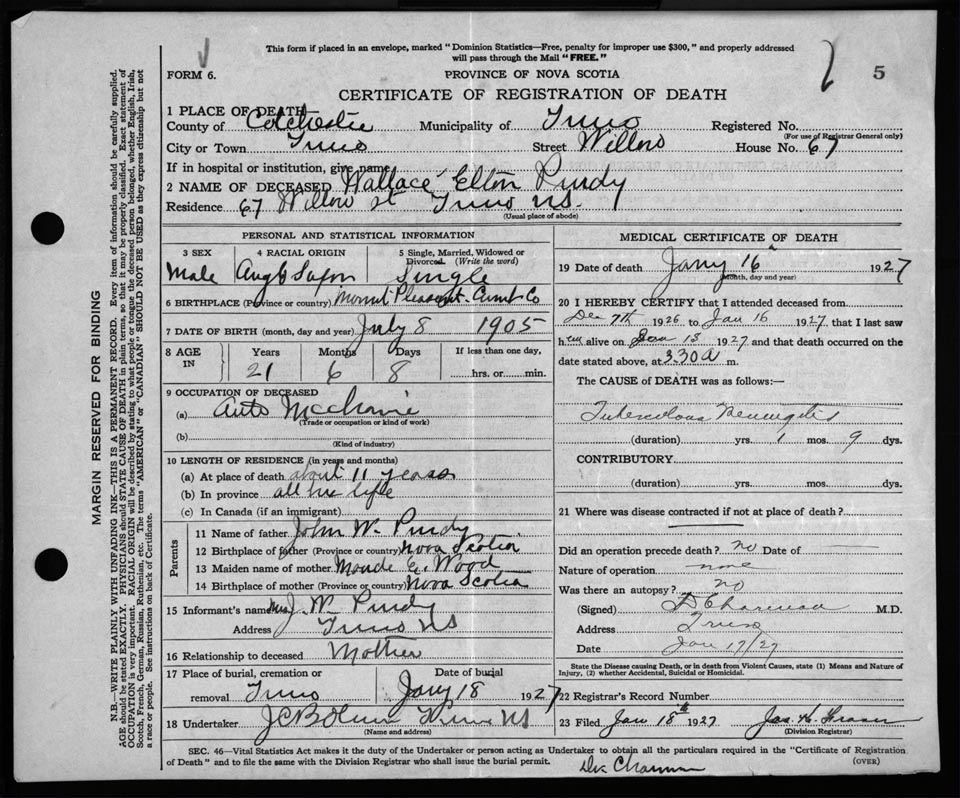 This form if placed in an envelope, marked "Dominion Statistics—Free, penalty for improper use $300," and properly addressed
will pass through the Mail "FREE."
5
FORM 6.
PROVINCE OF NOVA SCOTIA
CERTIFICATE OF REGISTRATION OF DEATH
1 PLACE OF DEATH
County of Colchester Municipality of Truro Registered No.
(For use of Registrar General only)
City or Town Truro Street Willow House No. 67
If in hospital or institution, give name
2 NAME OF DECEASED Wallace Elton Purdy
Residence 67 Willow St Truro NS.
(Usual place of abode)
PERSONAL AND STATISTICAL INFORMATION
3 SEX 4 RACIAL ORIGIN 5 Single, Married, Widowed or
Divorced. (Write the word)
Male Anglo Saxon Single
6 BIRTHPLACE (Province or country) Mount Pleasant Cumb Co
7 DATE OF BIRTH (month, day and year) July 8 1905
8 AGE IN Years Months Days If less than one day,
21 6 8 hrs. or min.
9 OCCUPATION OF DECEASED
(a) Auto Mechanic
(Trade or occupation or kind of work)
(b)
(Kind of industry)
10 LENGTH OF RESIDENCE (in years and months)
(a) At place of death about 11 years
(b) In province all his life
(c) In Canada (if an immigrant)
Parents
11 Name of father John W. Purdy
12 Birthplace of father (Province or country) Nova Scotia
13 Maiden name of mother Maude E. Wood
14 Birthplace of mother (Province or country) Nova Scotia
15 Informant's name Mrs J. W. Purdy
Address Truro NS
16 Relationship to deceased Mother
17 Place of burial, cremation or Date of burial
removal Truro Jany 18 1927
18 Undertaker Truro NS
(Name and address)
MEDICAL CERTIFICATE OF DEATH
19 Date of death Jany 16 1927
(month, day and year)
20 I HEREBY CERTIFY that I attended deceased from
Dec 7th 1926 to Jan 16 1927, that I last saw
him alive on 1927 and that death occurred on the
date stated above, at 3.30 a m.
The CAUSE of DEATH was as follows:—
Tuberculous Meningitis
(duration) yrs. 1 mos. 9 dys.
CONTRIBUTORY
(duration) yrs. mos. dys.
21 Where was disease contracted if not at place of death?
Did an operation precede death? no Date of
Nature of operation none
Was there an autopsy? no
(Signed) M.D.
Address Truro
Date Jan 17/27
State the Disease causing Death, or in death from Violent Causes, state (1) Means and Nature of
Injury, (2) whether Accidental, Suicidal or Homicidal.
22 Registrar's Record Number
23 Filed Jan 18th 1927 Jas. H. Fraser
(Division Registrar)
SEC. 46—Vital Statistics Act makes it the duty of the Undertaker or person acting as Undertaker to obtain all the particulars required in the "Certificate of Registration
of Death" and to file the same with the Division Registrar who shall issue the burial permit.
(OVER)
MARGIN RESERVED FOR BINDING
N.B.—WRITE PLAINLY WITH UNFADING INK—THIS IS A PERMANENT RECORD. Every item of information should be carefully supplied.
AGE should be stated EXACTLY. PHYSICIANS should STATE CAUSE OF DEATH in plain terms, so that it may be properly classified. Exact statement of
OCCUPATION is very important. RACIAL ORIGIN will be described by stating to what people or tongue the deceased person belonged, whether English, Irish,
Scotch, French, German, Russian, Ruthenian, etc. The terms "AMERICAN" or "CANADIAN" SHOULD NOT BE USED as they express citizenship but not
a race or people. See instructions on back of Certificate.